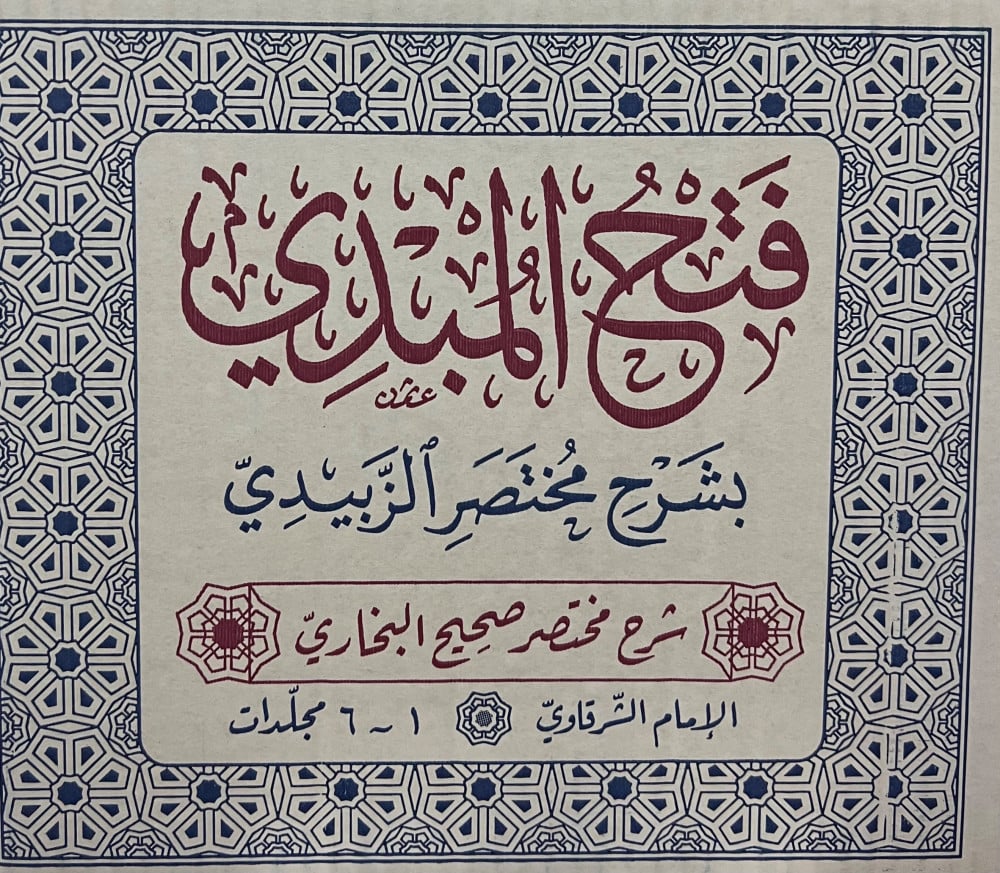 فَتْحُ المُبْدِي
عثمان
بشَرْحِ مُختَصَرِ ٱلزَّبيْدِيّ
شرح مختصر صحيح البخاريّ
الإمام الشّرقاويّ ١ ~ ٦ مجلّدات